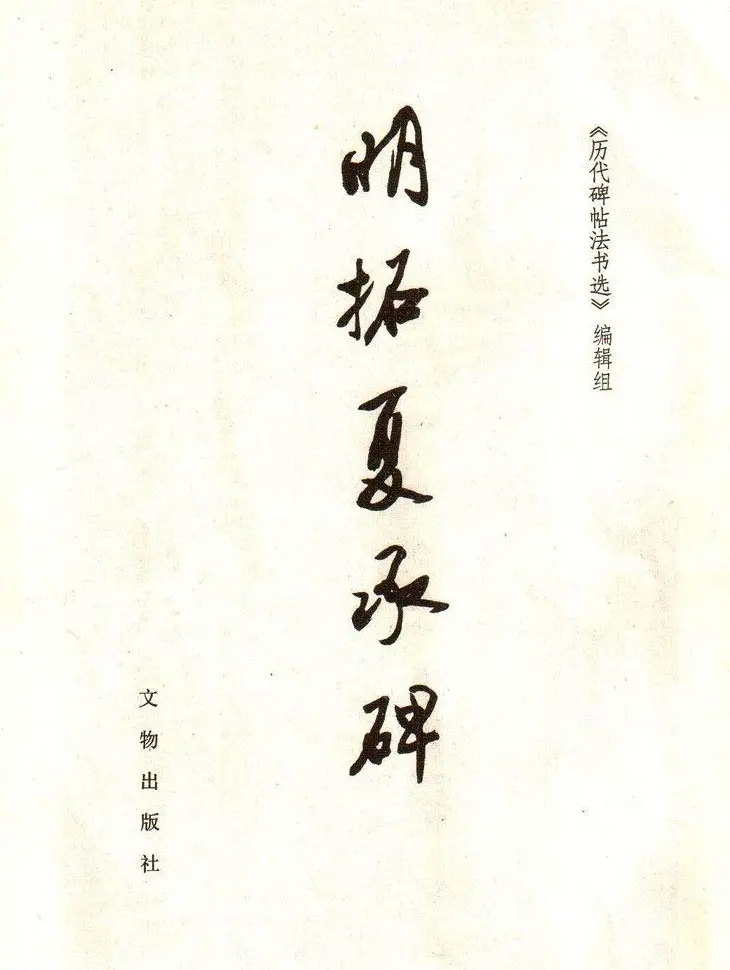 《历代碑帖法书选》编辑组
明拓夏承碑
文物出版社